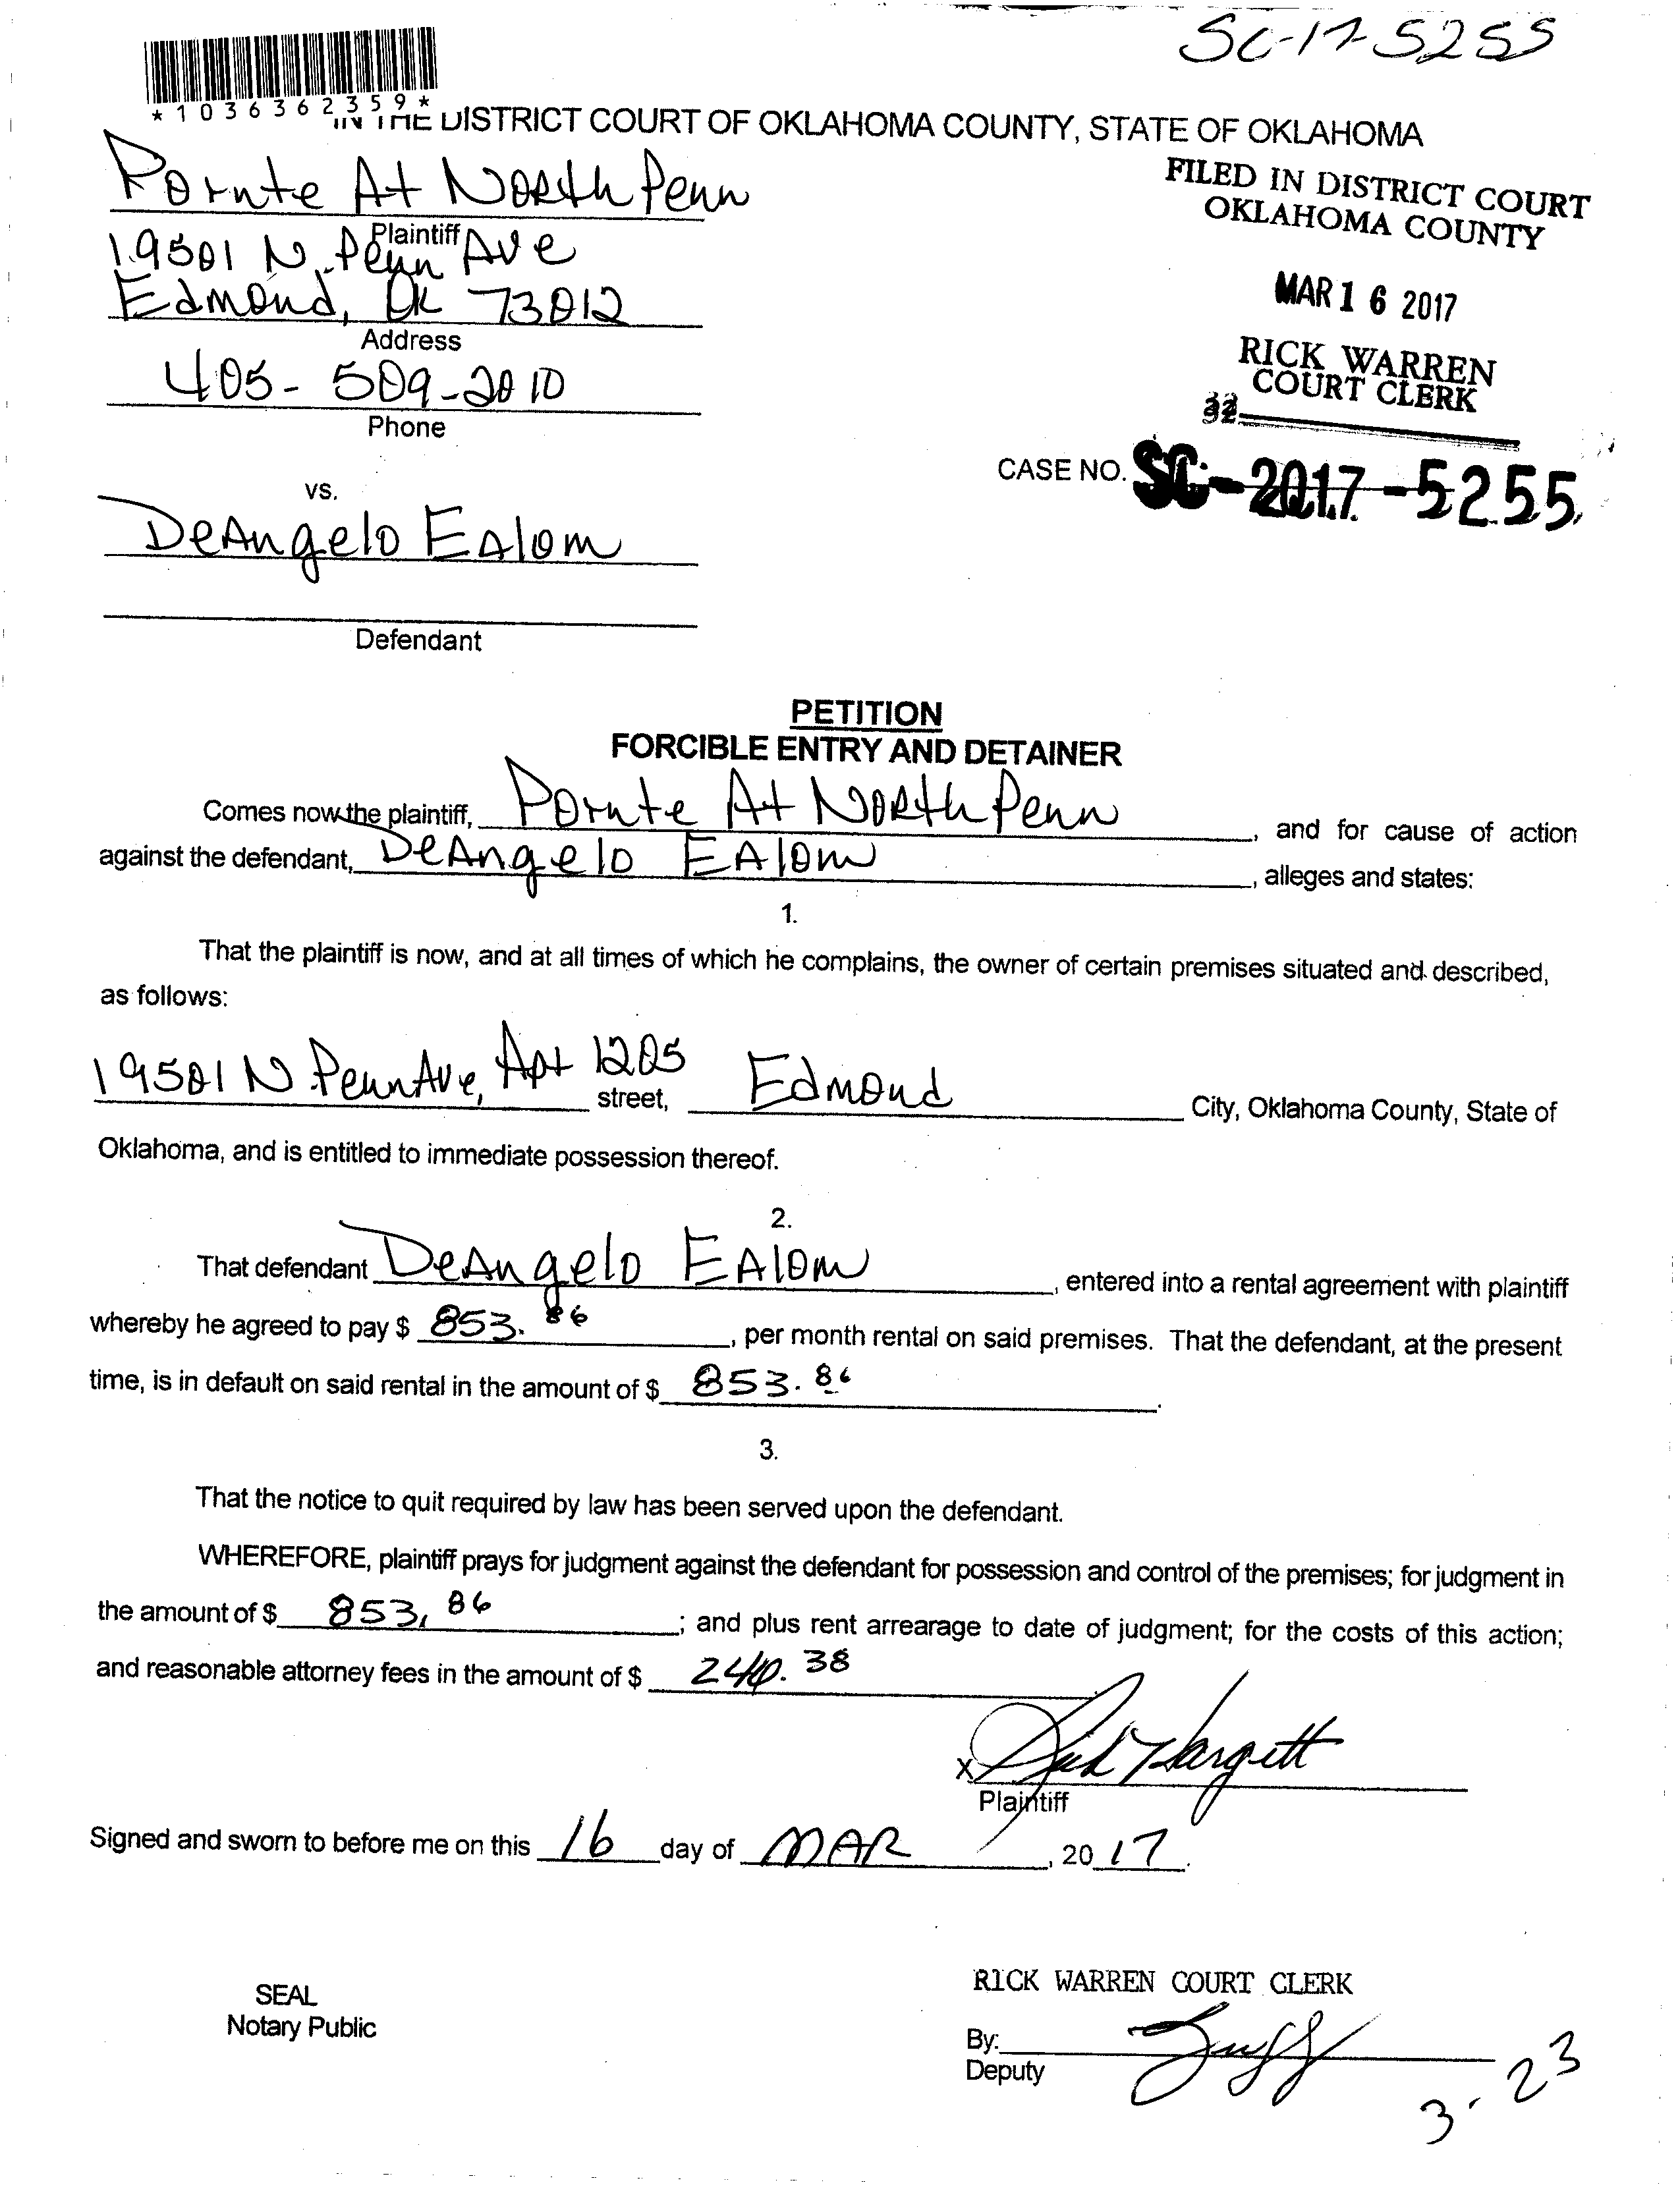 SC-17-5255
*1036362359*
IN THE DISTRICT COURT OF OKLAHOMA COUNTY, STATE OF OKLAHOMA
Pointe At North Penn
Plaintiff
19501 N. Penn Ave
Edmond, OK 73012
Address
405-509-2010
Phone
FILED IN DISTRICT COURT
OKLAHOMA COUNTY
MAR 16 2017
RICK WARREN
COURT CLERK
32
CASE NO. SC-2017-5255
vs.
DeAngelo Ealom
Defendant
PETITION
FORCIBLE ENTRY AND DETAINER
Comes now the plaintiff, Pointe At North Penn, and for cause of action
against the defendant, DeAngelo EAlom, alleges and states:
1.
That the plaintiff is now, and at all times of which he complains, the owner of certain premises situated and described,
as follows:
19501 N. Penn Ave, Apt 1205 street, Edmond City, Oklahoma County, State of
Oklahoma, and is entitled to immediate possession thereof.
2.
That defendant DeAngelo EAlom, entered into a rental agreement with plaintiff
whereby he agreed to pay $ 853.86, per month rental on said premises. That the defendant, at the present
time, is in default on said rental in the amount of $ 853.86.
3.
That the notice to quit required by law has been served upon the defendant.
WHEREFORE, plaintiff prays for judgment against the defendant for possession and control of the premises; for judgment in
the amount of $ 853.86; and plus rent arrearage to date of judgment; for the costs of this action;
and reasonable attorney fees in the amount of $ 240.38
X Hargett
Plaintiff
Signed and sworn to before me on this 16 day of MAR, 2017.
SEAL
Notary Public
RICK WARREN COURT CLERK
By:
Deputy
3-23